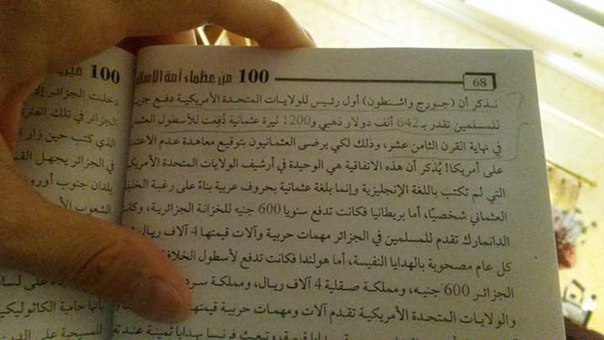 68 100 من عظماء أمة الإسلا
نذكر أن (جورج واشنطون) أول رئيس للولايات المتحدة الأمريكية دفع جزي
للمسلمين تقدر بـ 642 ألف دولار ذهبي و1200 ليرة عثمانية دُفعت للأسطول العثما
في نهاية القرن الثامن عشر، وذلك لكي يرضى العثمانيون بتوقيع معاهدة عدم الاعتد
على أمريكا! يُذكر أن هذه الاتفاقية هي الوحيدة في أرشيف الولايات المتحدة الأمر
التي لم تكتب باللغة الإنجليزية وإنما بلغة عثمانية بحروف عربية بناءً على رغبة الخلي
العثماني شخصيًا، أما بريطانيا فكانت تدفع سنويا 600 جنيه للخزانة الجزائرية، وكان
الدانمارك تقدم للمسلمين في الجزائر مهمات حربية وآلات قيمتها 4 آلاف ريال
كل عام مصحوبة بالهدايا النفيسة، أما هولندا فكانت تدفع لأسطول الخلافة
الجزائر 600 جنيه، ومملكة صقلية 4 آلاف ريال، ومملكة سر
والولايات المتحدة الأمريكية تقدم آلات ومهمات حربية قيمتها
فرنسا هدايا ثمينة عند
100
ودخلت الجزائر
الجزائر في تلك الفترة
الذي كتب حين زار
في الجزائر يجهل الق
بلدان جنوب أورو
الشعوب الأ
على لسا
حامية الكاثوليكية